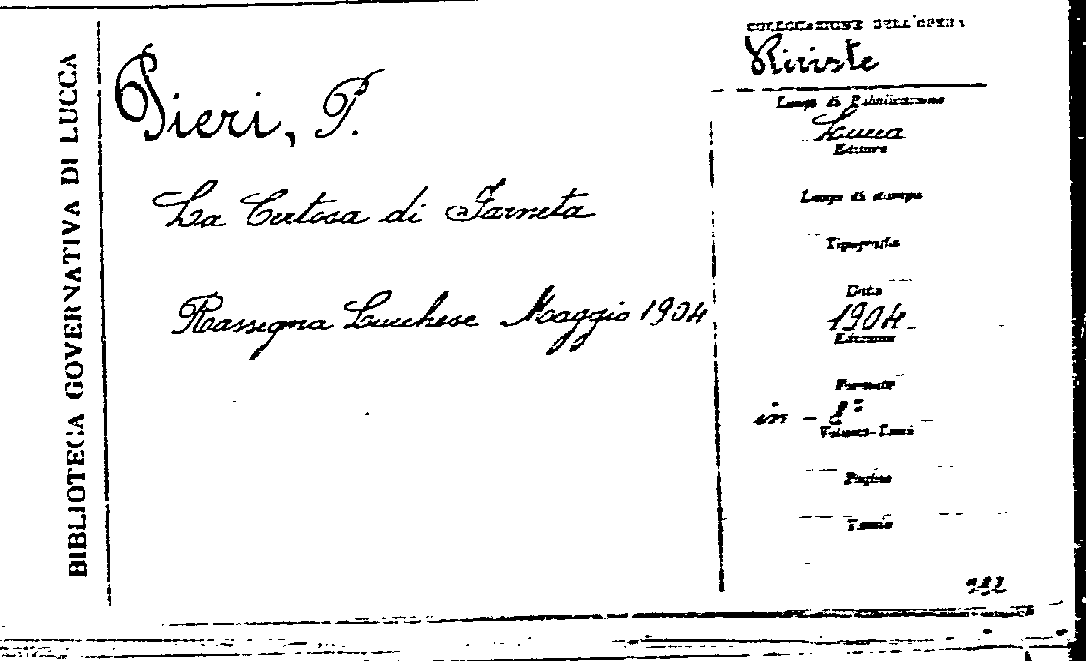 BIBLIOTECA GOVERNATIVA DI LUCCA
Pieri, P.
La Certosa di Farneta
Rassegna Lucchese Maggio 1904
COLLOCAZIONE DELL'OPERA
Riviste
Luogo di Pubblicazione
Lucca
Editore
Luogo di stampa
Tipografia
Data
1904
Edizione
Formato
in - 8º
Volumi-Tomi
Pagine
Tavole